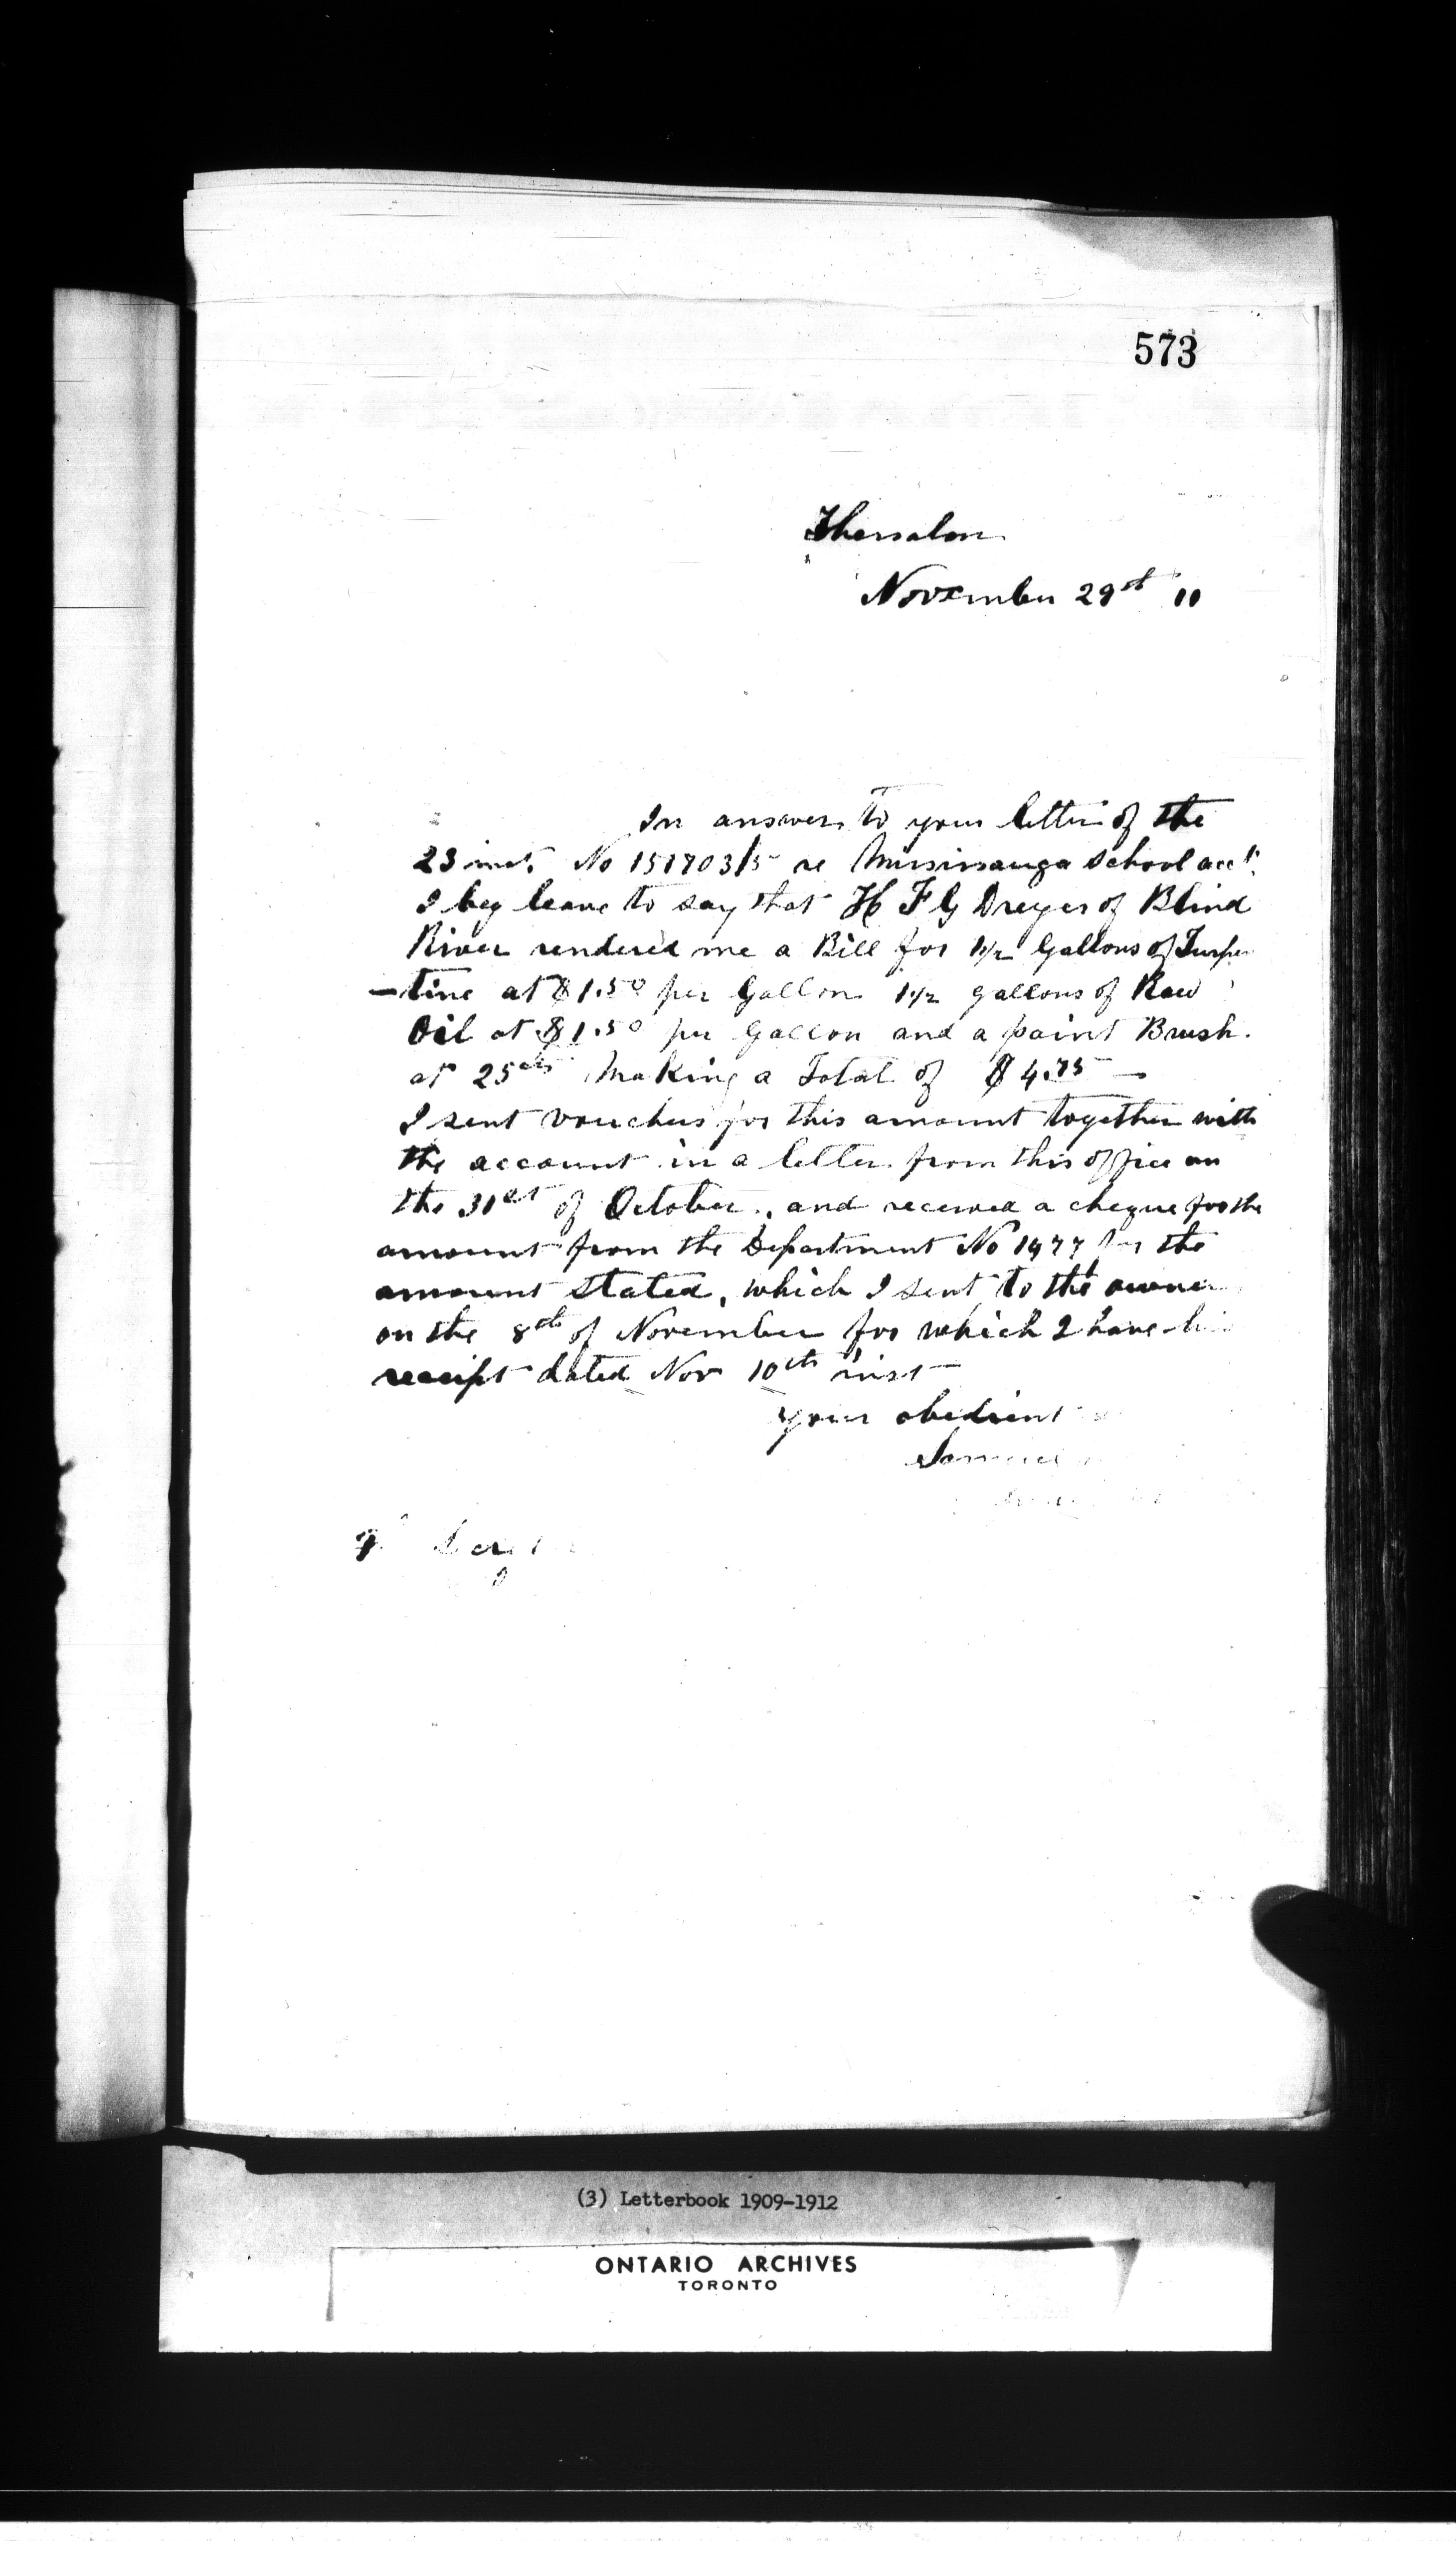 573
Thessalon
November 29st 11
In answer to your letter of the
23 inst. No 151703/5 re Mississauga School acct.
I beg leave to say that H F G Dreyer of Blind
River rendered me a Bill for 1½ Gallons of Turpen
-tine at $1.50 per Gallon 1½ gallons of Raw
Oil at $1.50 per Gallon and a paint Brush.
at 25cts Making a Total of $4.75 —
I sent vouchers for this amount together with
the account in a letter from this office on
the 31st of October., and received a cheque for the
amount from the Department No 1977 for the
amount stated, which I sent to the owner
on the 8th of November for which I have
receipt dated Nov 10th inst
Your obedient
Samuel
(3) Letterbook 1909-1912
ONTARIO ARCHIVES
TORONTO